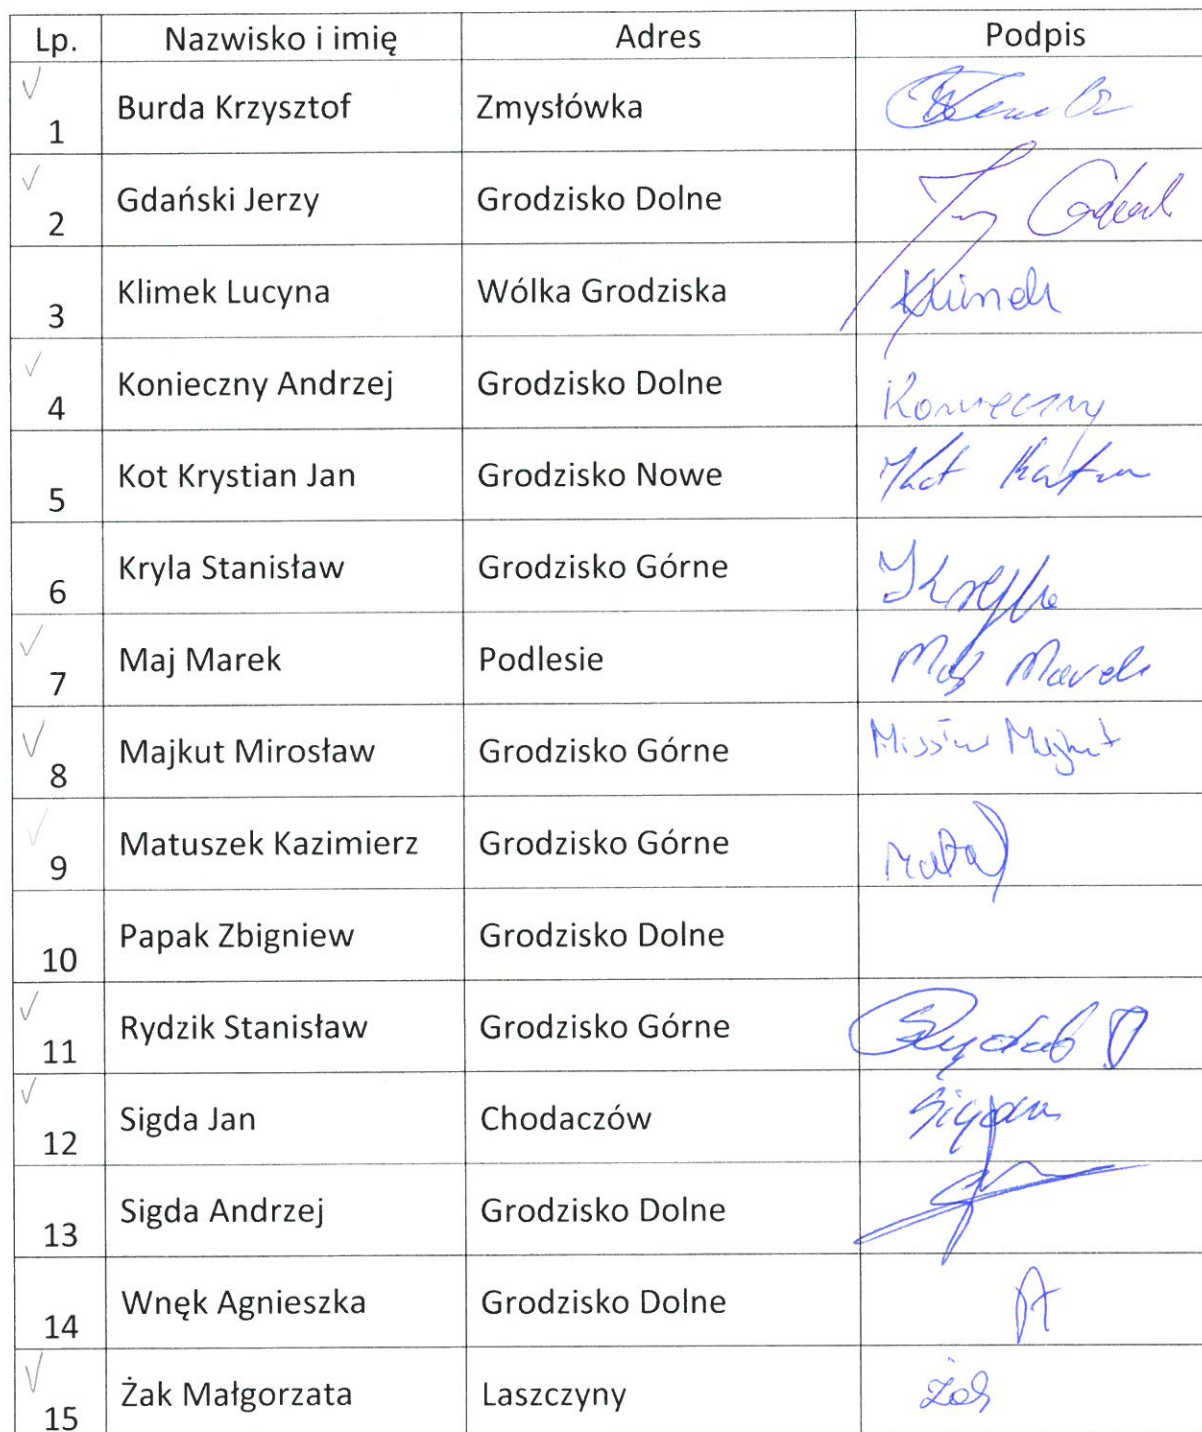 Lp. Nazwisko i imię Adres Podpis
1 Burda Krzysztof Zmysłówka
2 Gdański Jerzy Grodzisko Dolne
3 Klimek Lucyna Wólka Grodziska Klimek
4 Konieczny Andrzej Grodzisko Dolne Konieczny
5 Kot Krystian Jan Grodzisko Nowe Kot
6 Kryla Stanisław Grodzisko Górne
7 Maj Marek Podlesie Maj Marek
8 Majkut Mirosław Grodzisko Górne Majkut
9 Matuszek Kazimierz Grodzisko Górne
10 Papak Zbigniew Grodzisko Dolne
11 Rydzik Stanisław Grodzisko Górne
12 Sigda Jan Chodaczów
13 Sigda Andrzej Grodzisko Dolne
14 Wnęk Agnieszka Grodzisko Dolne
15 Żak Małgorzata Laszczyny Żak